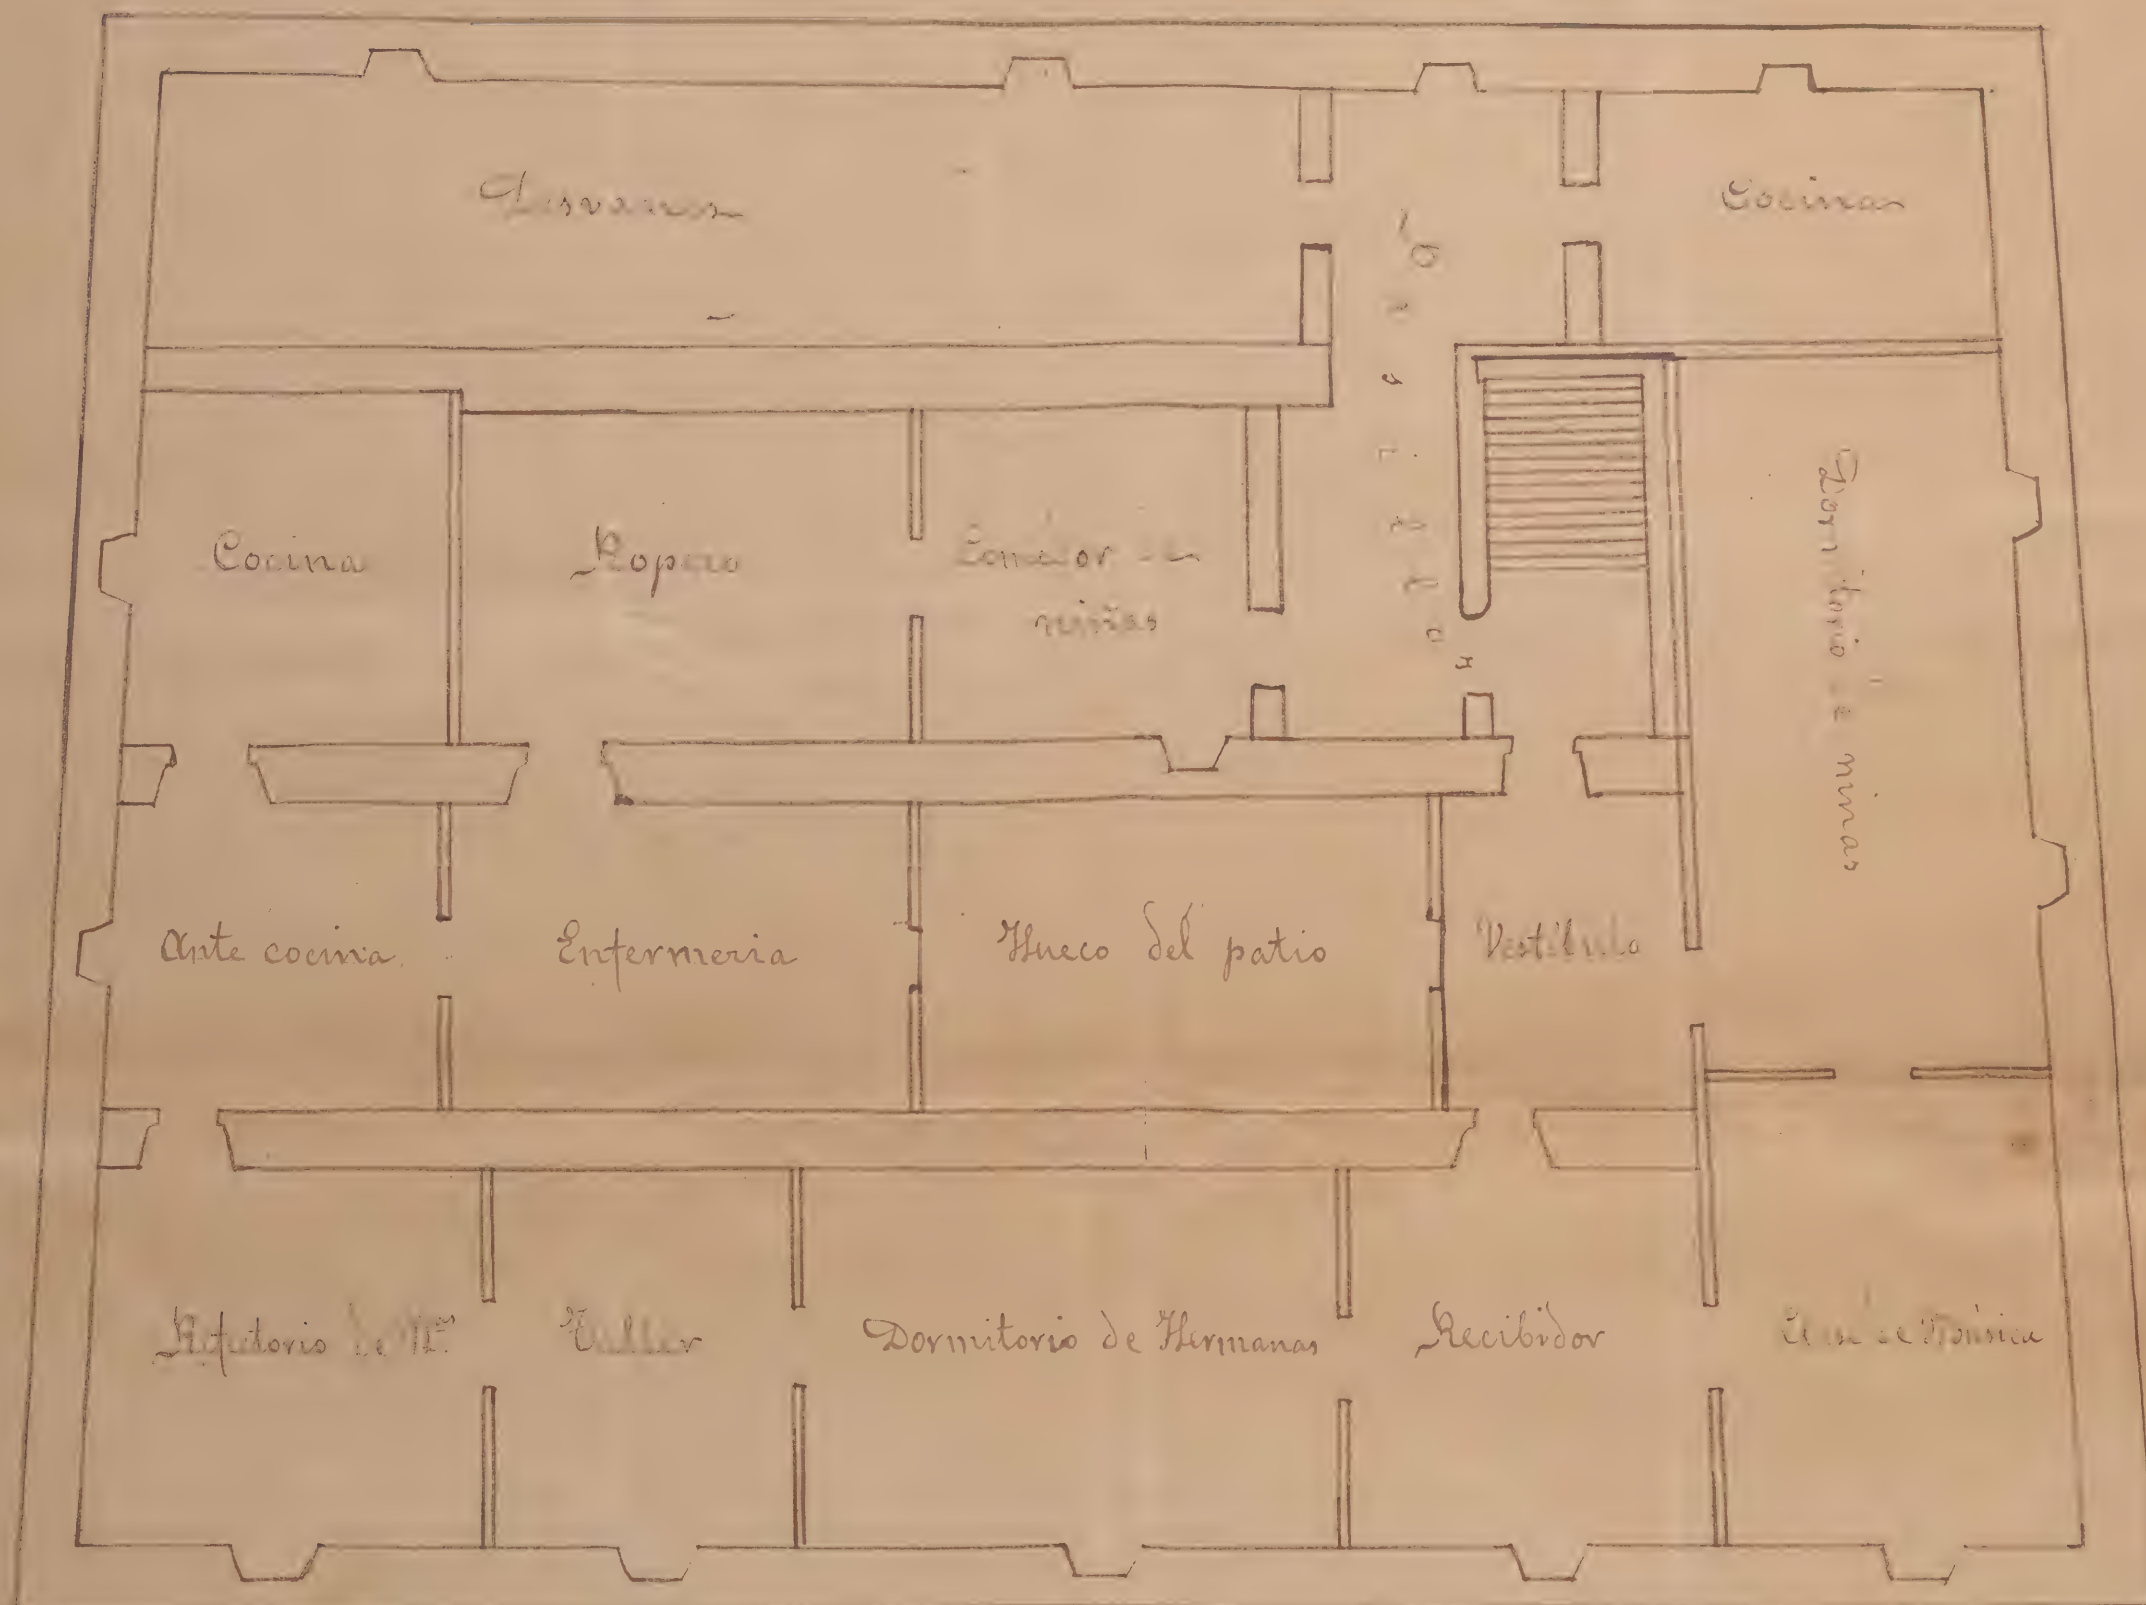 Desvanes
Cocina
Pasillos
Cocina
Ropero
Comedor de
niñas
Dormitorio de niñas
Ante cocina
Enfermeria
Hueco del patio
Vestíbulo
Refectorio de
Taller
Dormitorio de Hermanas
Recibidor
Clase de Música